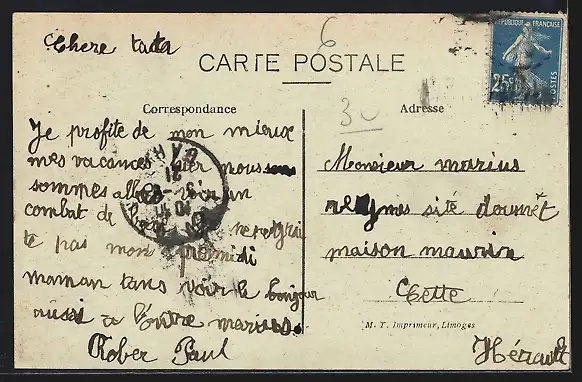 Chere tata
6
CARTE POSTALE
REPUBLIQUE FRANÇAISE
25c
POSTES
Correspondance
Adresse
30
Je profite de mon mieux
mes vacances hier nous
sommes allé voir un
combat de
te pas mon
maman tans voir le bonjour
aussi a l'ontre marius.
Rober Paul
Monsieur marius
reymes sité doumêt
maison maurin
Cette
Hérault
M. T. Imprimeur, Limoges